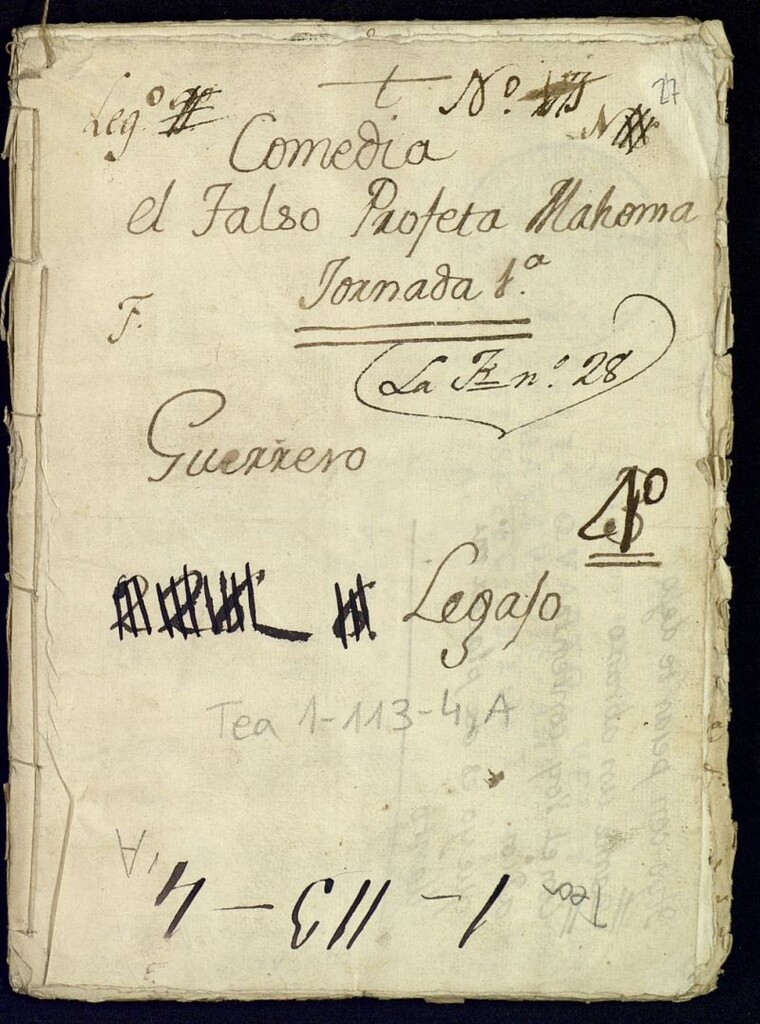 27
Legº
t Nº
N
Comedia
el Falso Profeta Mahoma
Jornada 1.ª
F.
La F. nº. 28
Guerrero
1º
Legajo
Tea 1-113-4, A
Tea 1-113-4, A